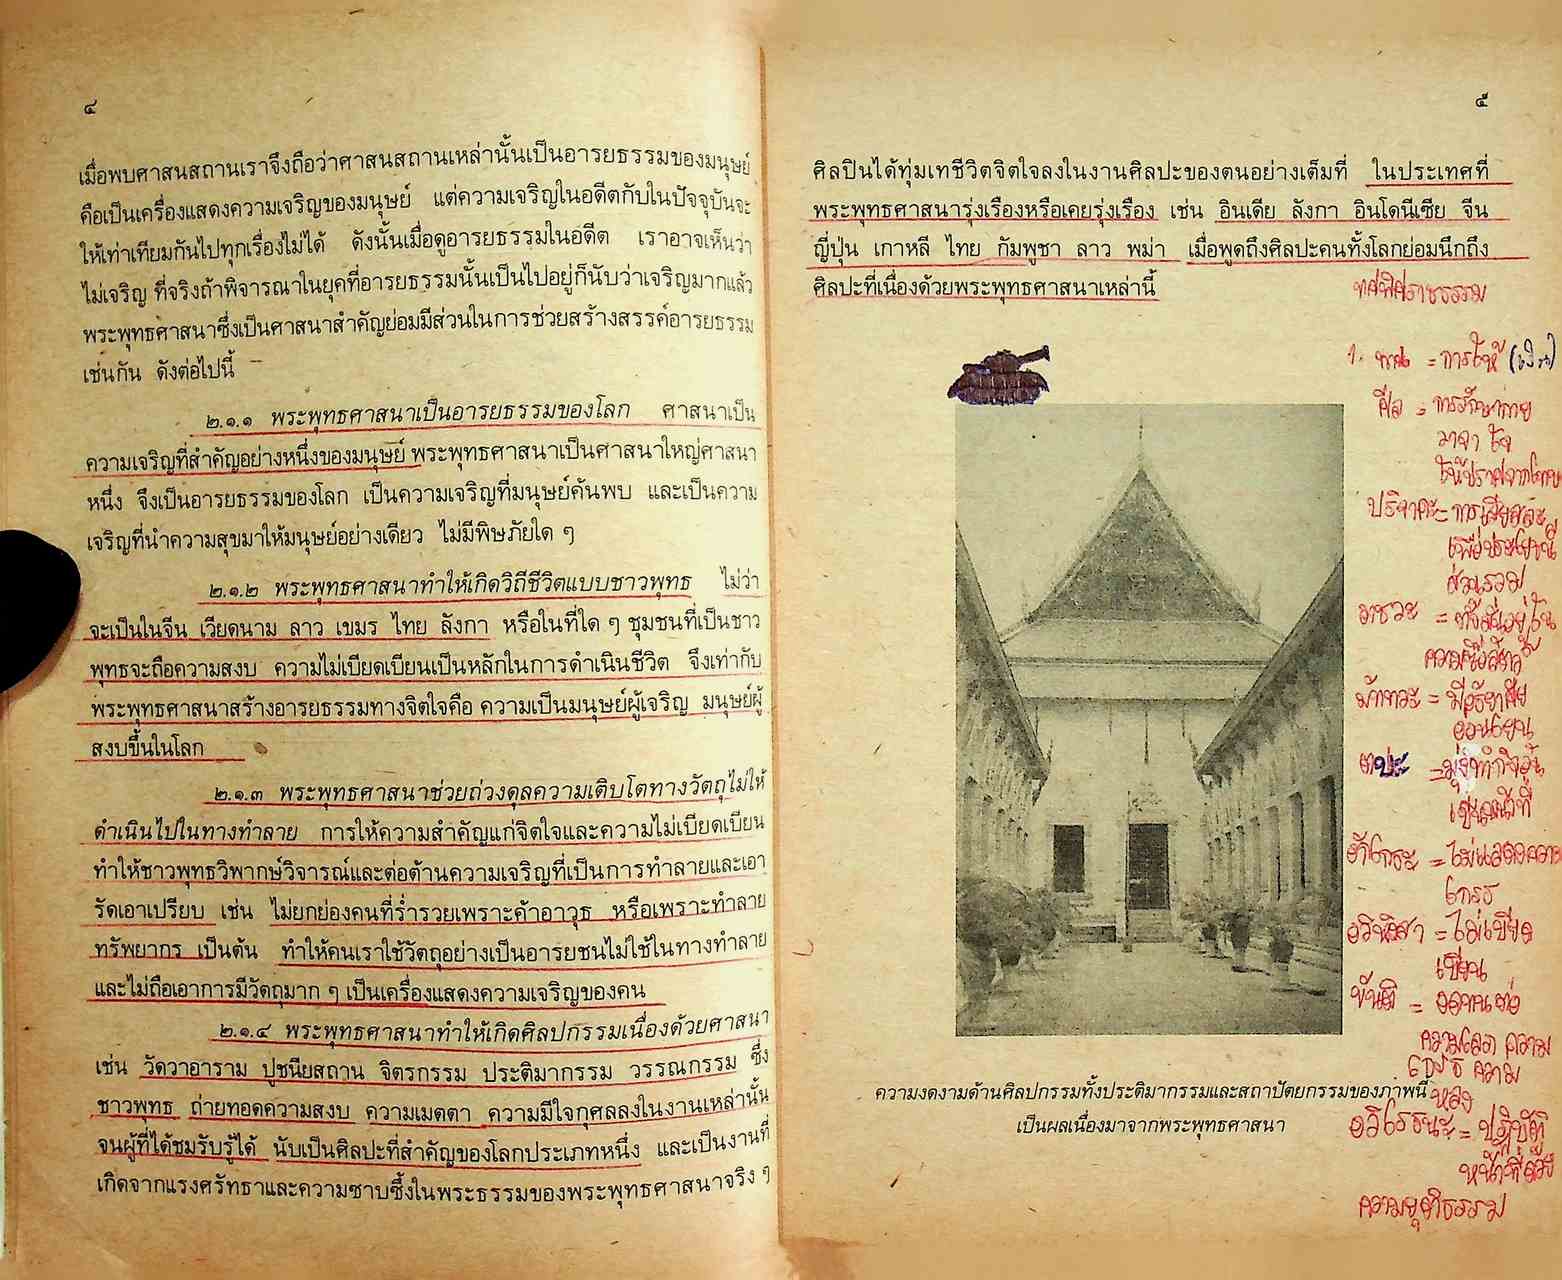 ๔
เมื่อพบศาสนสถานเราจึงถือว่าศาสนสถานเหล่านั้นเป็นอารยธรรมของมนุษย์
คือเป็นเครื่องแสดงความเจริญของมนุษย์ แต่ความเจริญในอดีตกับในปัจจุบันจะ
ให้เท่าเทียมกันไปทุกเรื่องไม่ได้ ดังนั้นเมื่อดูอารยธรรมในอดีต เราอาจเห็นว่า
ไม่เจริญ ที่จริงถ้าพิจารณาในยุคที่อารยธรรมนั้นเป็นไปอยู่ก็นับว่าเจริญมากแล้ว
พระพุทธศาสนาซึ่งเป็นศาสนาสำคัญย่อมมีส่วนในการช่วยสร้างสรรค์อารยธรรม
เช่นกัน ดังต่อไปนี้
๒.๑.๑ พระพุทธศาสนาเป็นอารยธรรมของโลก ศาสนาเป็น
ความเจริญที่สำคัญอย่างหนึ่งของมนุษย์ พระพุทธศาสนาเป็นศาสนาใหญ่ศาสนา
หนึ่ง จึงเป็นอารยธรรมของโลก เป็นความเจริญที่มนุษย์ค้นพบ และเป็นความ
เจริญที่นำความสุขมาให้มนุษย์อย่างเดียว ไม่มีพิษภัยใด ๆ
๒.๑.๒ พระพุทธศาสนาทำให้เกิดวิถีชีวิตแบบชาวพุทธ ไม่ว่า
จะเป็นในจีน เวียดนาม ลาว เขมร ไทย ลังกา หรือในที่ใด ๆ ชุมชนที่เป็นชาว
พุทธจะถือความสงบ ความไม่เบียดเบียนเป็นหลักในการดำเนินชีวิต จึงเท่ากับ
พระพุทธศาสนาสร้างอารยธรรมทางจิตใจคือ ความเป็นมนุษย์ผู้เจริญ มนุษย์ผู้
สงบขึ้นในโลก
๒.๑.๓ พระพุทธศาสนาช่วยถ่วงดุลความเติบโตทางวัตถุไม่ให้
ดำเนินไปในทางทำลาย การให้ความสำคัญแก่จิตใจและความไม่เบียดเบียน
ทำให้ชาวพุทธวิพากษ์วิจารณ์และต่อต้านความเจริญที่เป็นการทำลายและเอา
รัดเอาเปรียบ เช่น ไม่ยกย่องคนที่ร่ำรวยเพราะค้าอาวุธ หรือเพราะทำลาย
ทรัพยากร เป็นต้น ทำให้คนเราใช้วัตถุอย่างเป็นอารยชนไม่ใช้ในทางทำลาย
และไม่ถือเอาการมีวัตถุมาก ๆ เป็นเครื่องแสดงความเจริญของคน
๒.๑.๔ พระพุทธศาสนาทำให้เกิดศิลปกรรมเนื่องด้วยศาสนา
เช่น วัดวาอาราม ปูชนียสถาน จิตรกรรม ประติมากรรม วรรณกรรม ซึ่ง
ชาวพุทธ ถ่ายทอดความสงบ ความเมตตา ความมีใจกุศลลงในงานเหล่านั้น
จนผู้ที่ได้ชมรับรู้ได้ นับเป็นศิลปะที่สำคัญของโลกประเภทหนึ่ง และเป็นงานที่
เกิดจากแรงศรัทธาและความซาบซึ้งในพระธรรมของพระพุทธศาสนาจริง ๆ
๕
ศิลปินได้ทุ่มเทชีวิตจิตใจลงในงานศิลปะของตนอย่างเต็มที่ ในประเทศที่
พระพุทธศาสนารุ่งเรืองหรือเคยรุ่งเรือง เช่น อินเดีย ลังกา อินโดนีเซีย จีน
ญี่ปุ่น เกาหลี ไทย กัมพูชา ลาว พม่า เมื่อพูดถึงศิลปะคนทั้งโลกย่อมนึกถึง
ศิลปะที่เนื่องด้วยพระพุทธศาสนาเหล่านี้
ทศพิศราชธรรม
1. ทาน = การให้ (เงิน)
ศีล = การรักษากาย
วาจา ใจ
ปริจาคะ = การเสียสละ
เพื่อประโยชน์
ส่วนรวม
อาชวะ =
ความซื่อสัตย์
มัททวะ = มีอัธยาศัย
อ่อนโยน
ตปะ =
อักโกธะ = ไม่แสดงความ
โกรธ
อวิหิงสา = ไม่เบียด
เบียน
ขันติ = อดทนต่อ
ความโลภ ความ
โกรธ ความ
หลง
อวิโรธนะ = ปฏิบัติ
หน้าที่ด้วย
ความยุติธรรม
ความงดงามด้านศิลปกรรมทั้งประติมากรรมและสถาปัตยกรรมของภาพนี้
เป็นผลเนื่องมาจากพระพุทธศาสนา